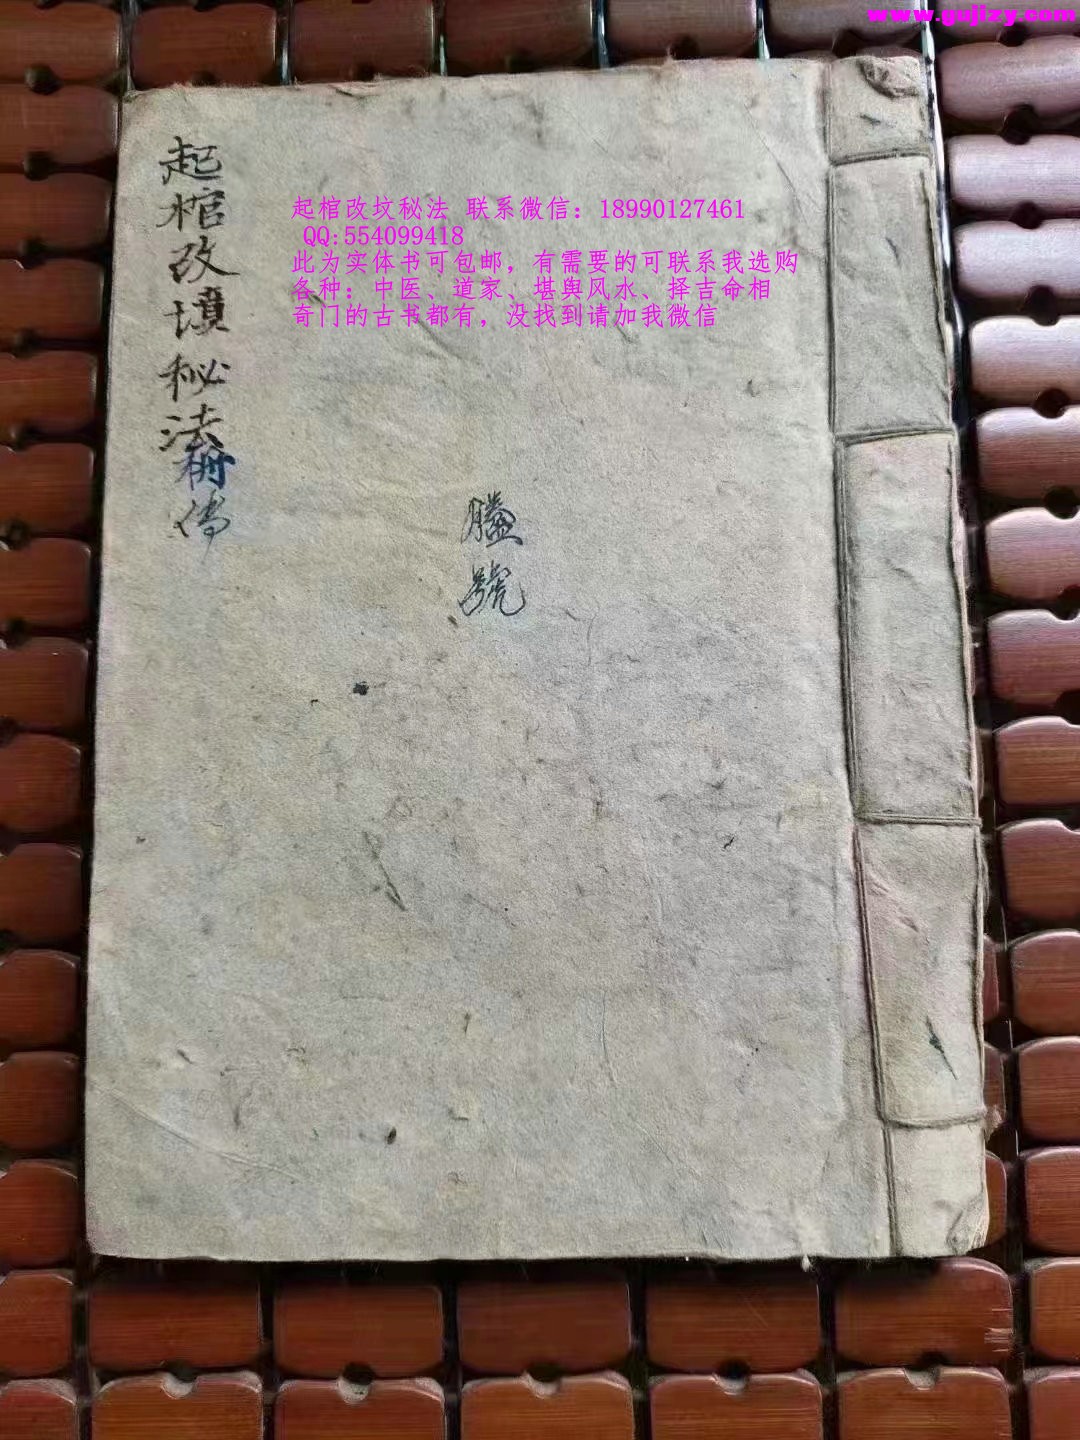 www.gujizy.com
起棺改坟秘法 联系微信：18990127461
QQ:554099418
此为实体书可包邮，有需要的可联系我选购
各种：中医、道家、堪舆风水、择吉命相
奇门的古书都有，没找到请加我微信
起棺改墳秘法
傳
號